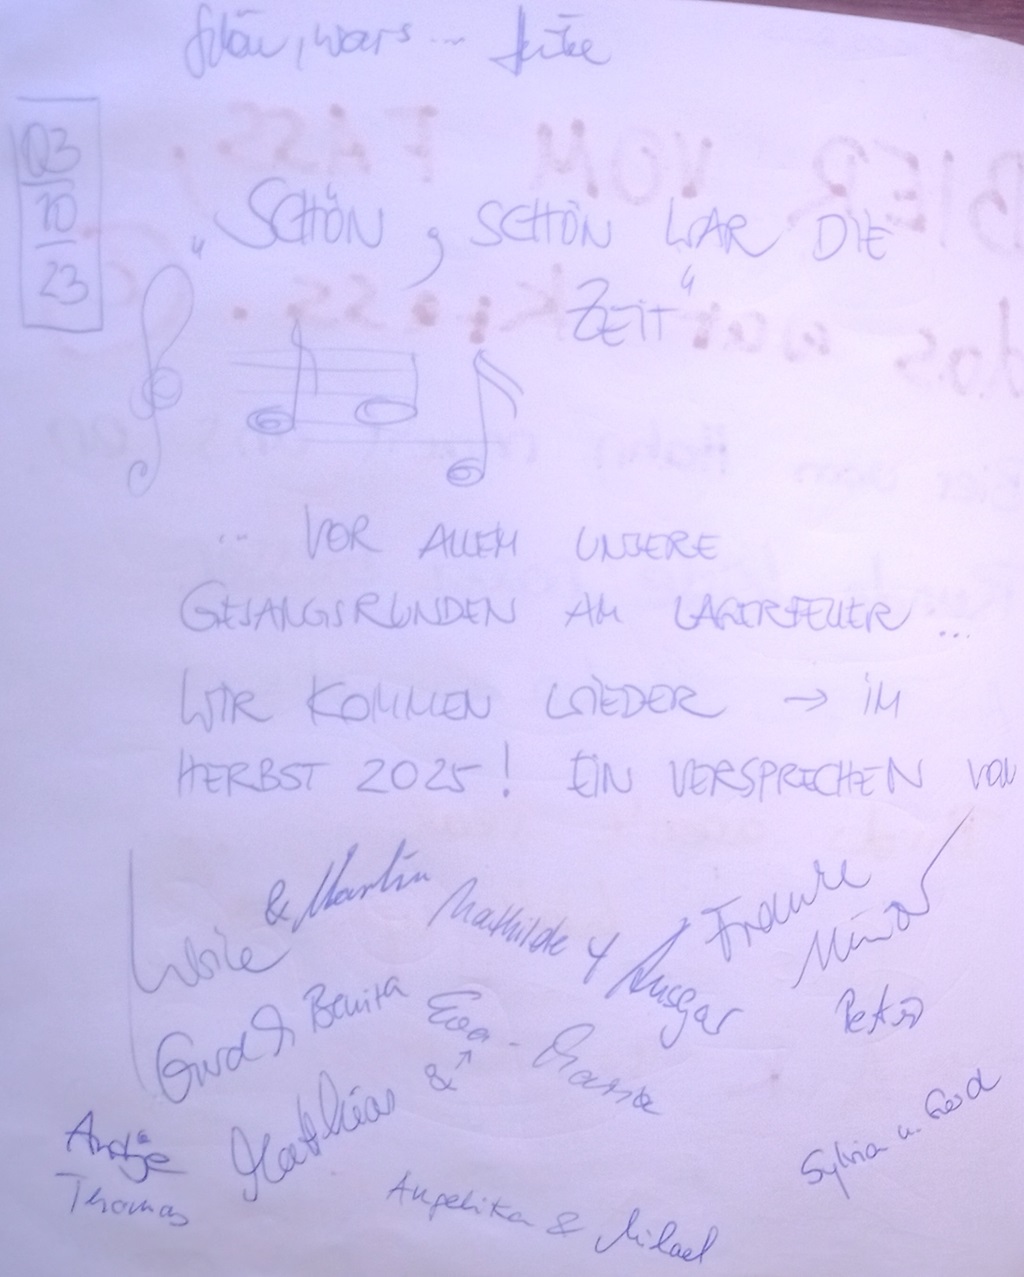 wars...
03
10
23
"SCHÖN, SCHÖN WAR DIE
ZEIT"
... VOR ALLEM UNSERE
GESANGSRUNDEN AM LAGERFEUER...
WIR KOMMEN WIEDER → IM
HERBST 2025! EIN VERSPRECHEN VON
& Martin
Mathilde & Ansgar
Frauke
Benita
Eva-Maria
Peter
Matthias &
Antje
Thomas
Sylvia u. Gerd
Angelika & Michael